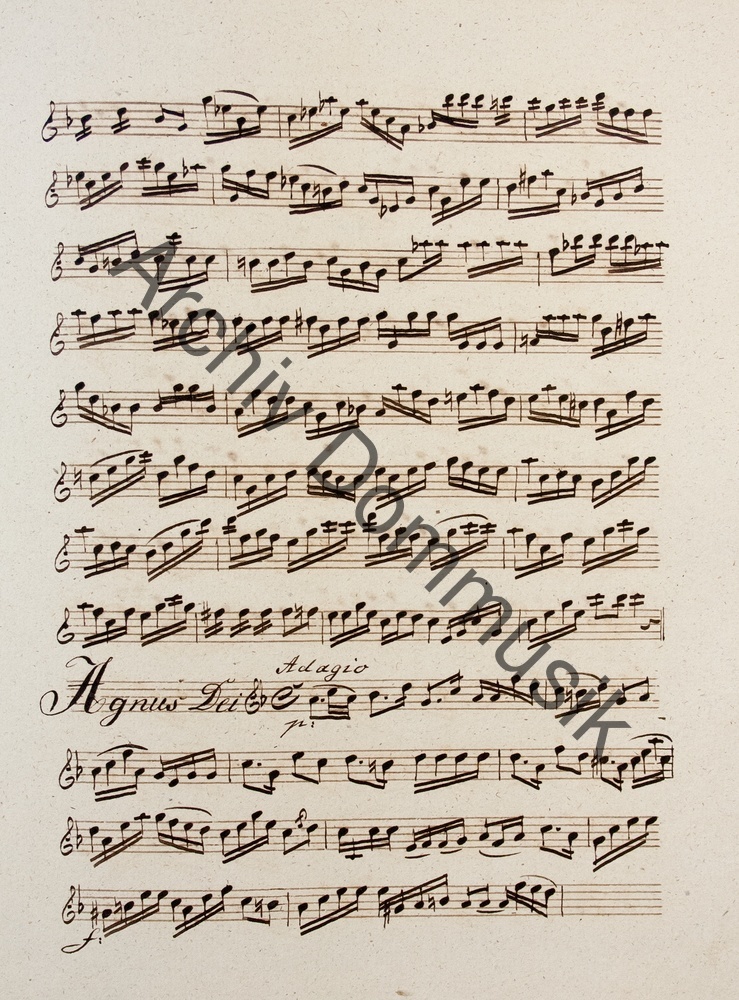 Archiv Dommusik
Adagio
Agnus Dei
p:
f: